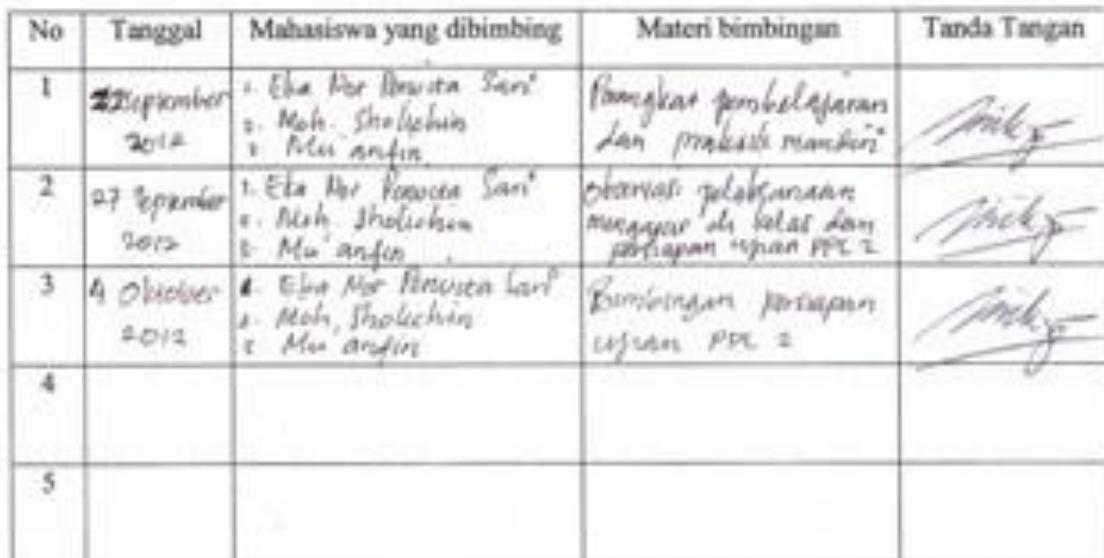 No Tanggal Mahasiswa yang dibimbing Materi bimbingan Tanda Tangan
1
22 September
2012
1. Eka Nor Sari
2. Moh. Sholichin
3. Mu'arifin
Perangkat pembelajaran
dan praktik mandiri
2
27 September
2012
1. Eka Nor Sari
2. Moh. Sholichin
3. Mu'arifin
Observasi pelaksanaan
mengajar di kelas dan
persiapan ujian PPL 2
3
4 Oktober
2012
1. Eka Nor Sari
2. Moh. Sholichin
3. Mu'arifin
Bimbingan persiapan
ujian PPL 2
4
5